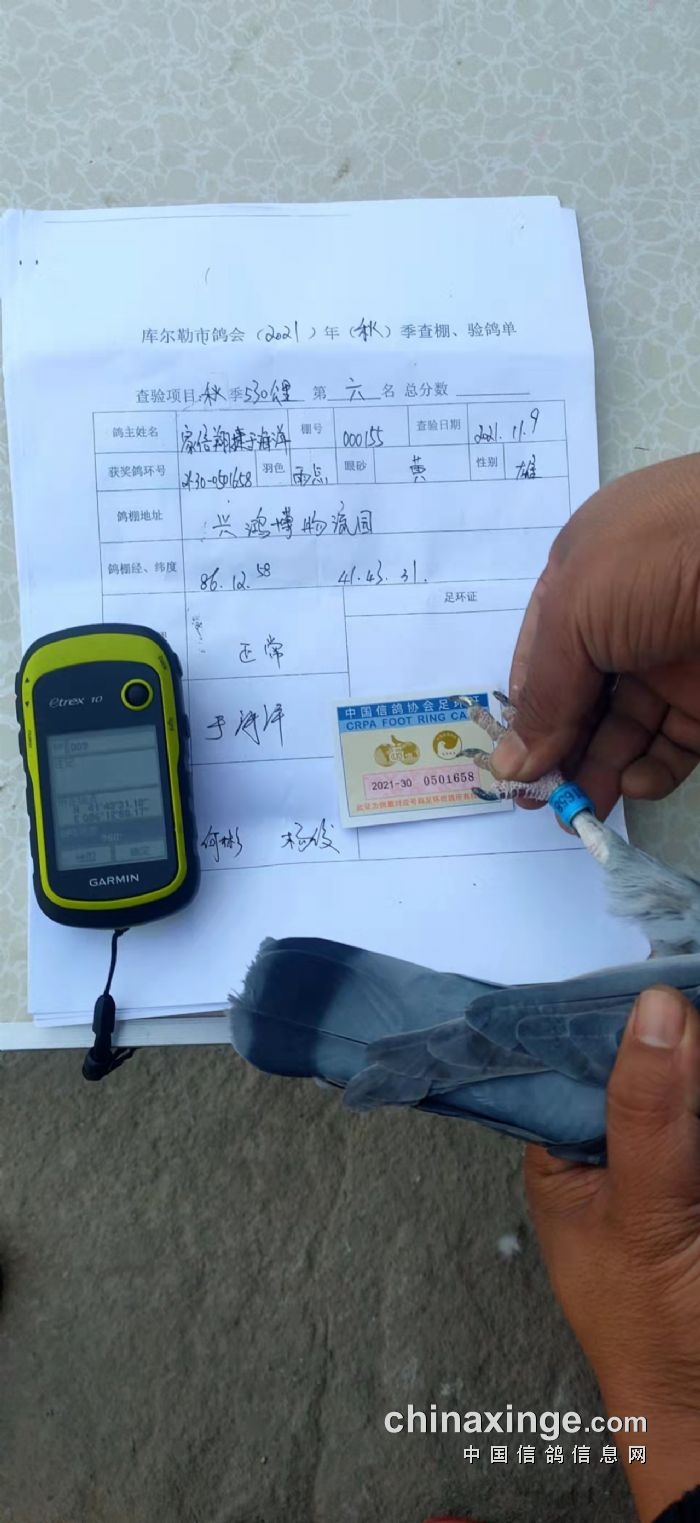 库尔勒市鸽会（2021）年（秋）季查棚、验鸽单
查验项目:秋季530公里 第 六 名 总分数
鸽主姓名 家信翔捷于海洋 棚号 000155 查验日期 2021.11.9
获奖鸽环号 21-30-0501658 羽色 雨点 眼砂 黄 性别 雄
鸽棚地址 兴鸿博物流园
鸽棚经、纬度 86.12.58 41.43.31.
足环证
正常
于海洋
何彬 杨俊
中国信鸽协会足环证
CRPA FOOT RING CA
2021-30 0501658
etrex 10
N 41°43'31.10"
E 086°12'58.17"
GARMIN
chinaxinge.com
中国信鸽信息网